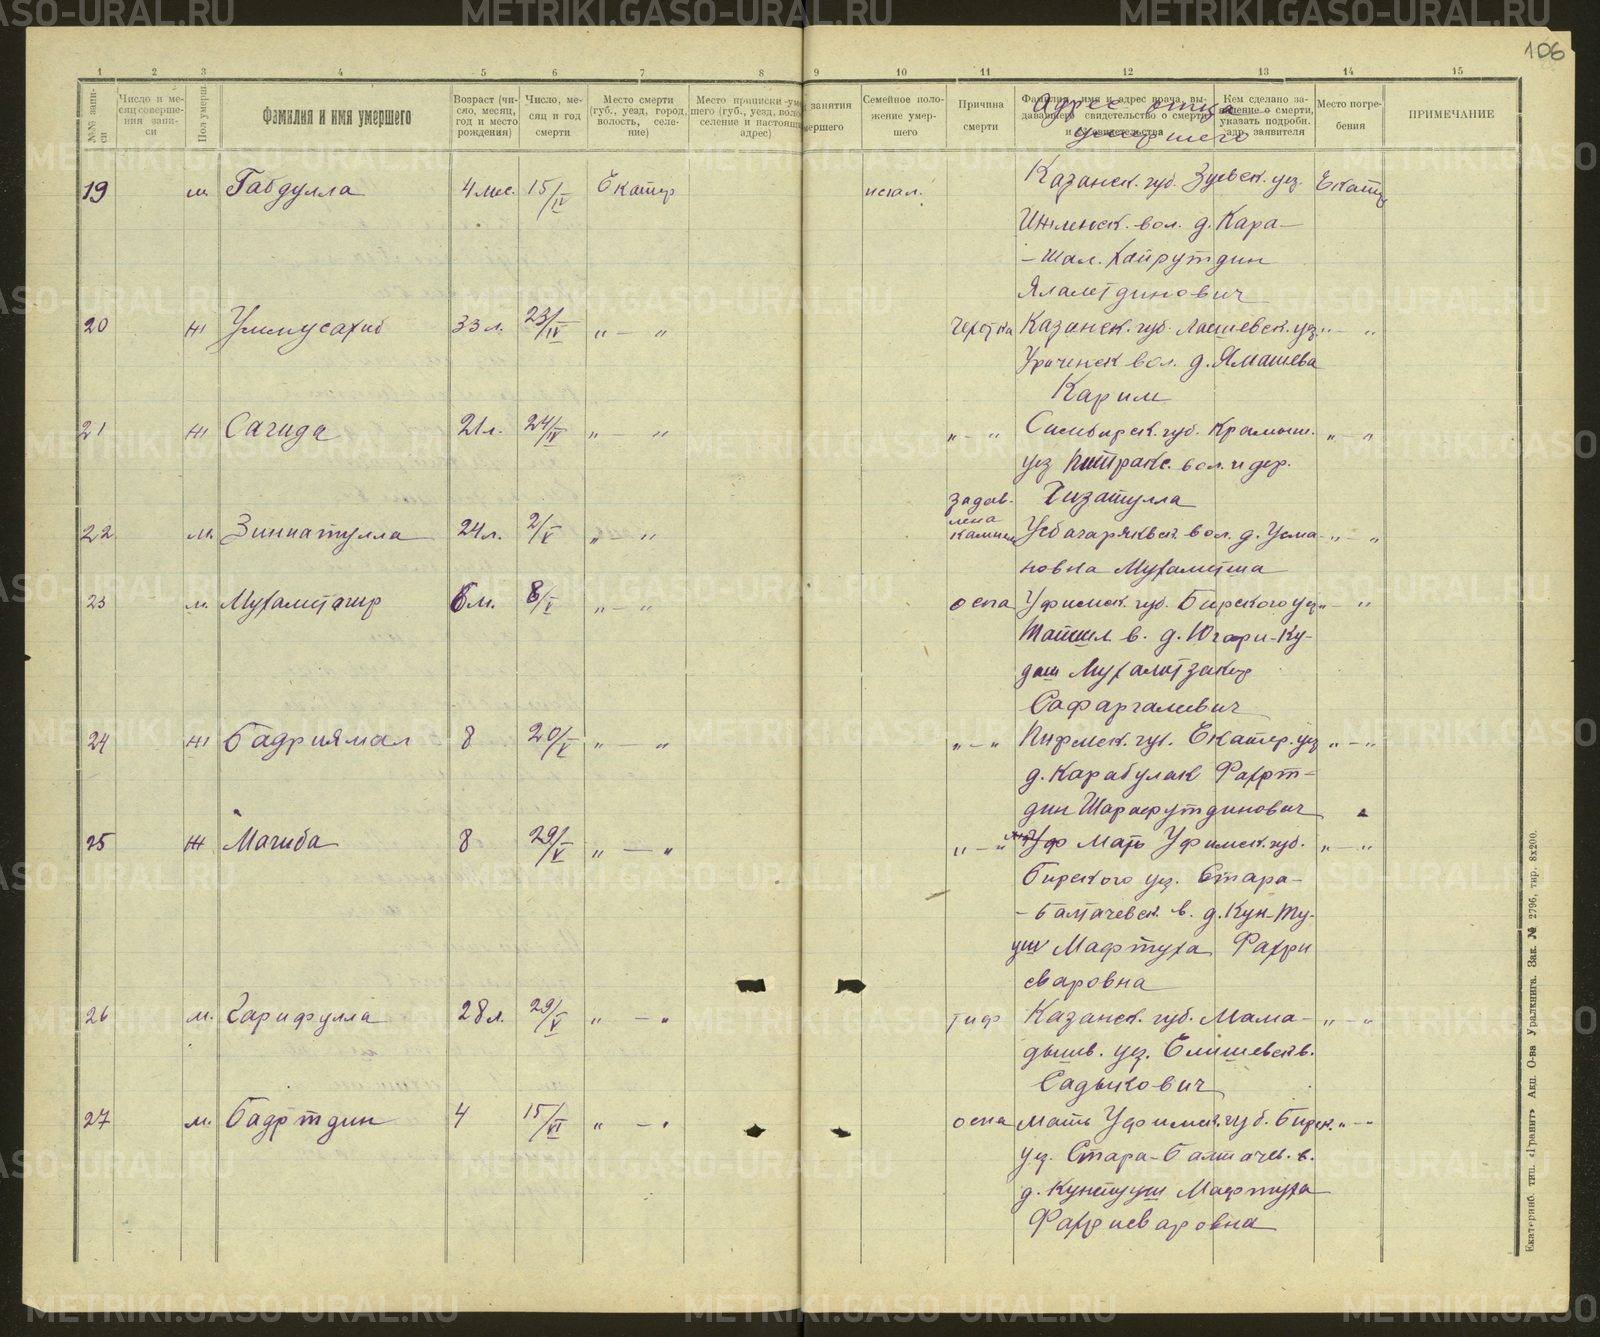 106
1 2 3 4 5 6 7 8 9 10 11 12 13 14 15
№№ записи
Число и месяц совершения записи
Пол умерш.
Фамилия и имя умершего
Возраст (число, месяц, год и место рождения)
Число, месяц и год смерти
Место смерти (губ., уезд, город, волость, селение)
Место приписки умершего (губ., уезд, воло селение и настоящ адрес)
занятия умершего
Семейное положение умершего
Причина смерти
Фамилия, имя и адрес врача, выдававшего свидетельство о смерти и свидетельства
Кем сделано заявление о смерти, указать подробн. адр. заявителя
Место погребения
ПРИМЕЧАНИЕ
Адрес отца
умершего
19 м. Габдулла 4 мес. 15/IV Екатер Казанск. губ. уез. Екатер
вол. д. Кара-
-шал. Хайрутдин
Ялалетдинович
20 ж 33 л. 23/IV „ — „ Чехотка Казанск. губ. Лаишевск. уез. „ — „
вол. д. Ямашева
Карим
21 ж Сагида 21 л. 24/IV „ — „ „ — „ Симбирск. губ. „ — „
уез вол. и дер.
задав- Гизатулла
лена
22 м. Зиннатулла 24 л. 2/V „ — „ камнем вол. д. Усма- „ — „
новка
23 м. 6 м. 8/V „ — „ оспа Уфимск. губ. Бирского уез „ — „
в. д. Югари-Ку-
даш Мухаметзакир
Сафаргалиевич
24 ж Бадриямал 8 20/V „ — „ „ — „ Пирмск. губ. Екатер. уез „ — „
д. Карабулак Фахрт-
дин Шарафутдинович
25 ж Магиба 8 29/V „ — „ „ — „ Мать Уфимск. губ. „ — „
Бирского уез. Стара-
-Балтачевск. в. д. Кун-Ту-
уш Мафтуха Фахри
еваровна
26 м. Гарифулла 28 л. 29/V „ — „ тиф Казанск. губ. Мама- „ — „
дышв. уез. в.
Садыкович
27 м. Бадртдин 4 15/VI „ — „ оспа мать Уфимск. губ. Бирск. „ — „
уез. Стара-Балтачев. в.
д. Кунтууш Мафтуха
Фахриеваровна
Екатеринб. тип. «Гранит» Акц. О-ва Уралкнига. Зак. № 2796, тир. 8х200.
METRIKI.GASO-URAL.RU